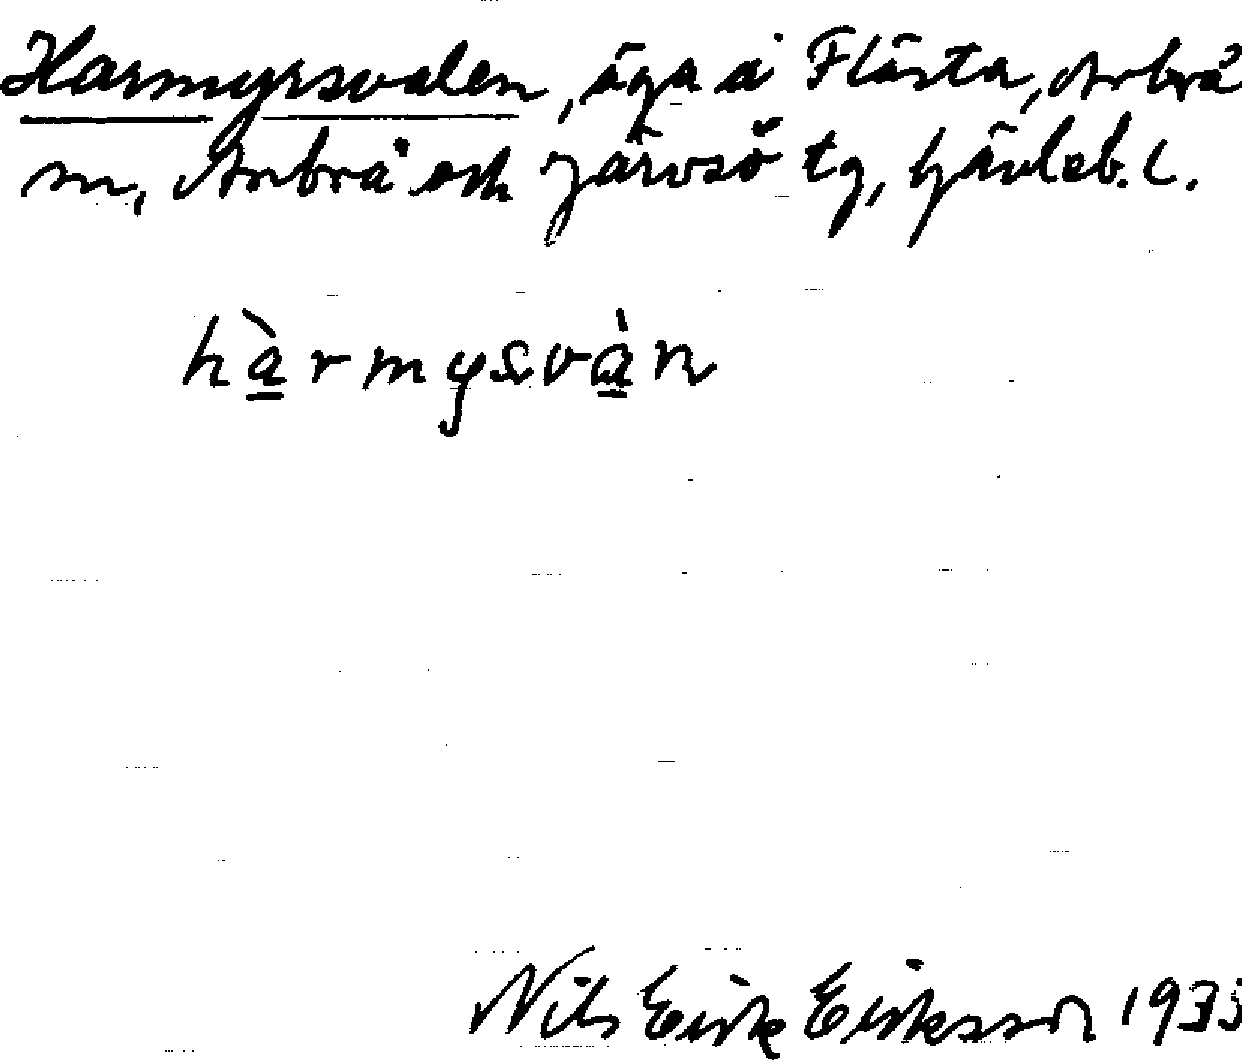 Harmyrsvalen, äga å Flästa, Arbrå
sn, Arbrå och Järvsö tg, Gävleb. l.
hàrmysvàn
Nils Eirik Eiriksson 1933